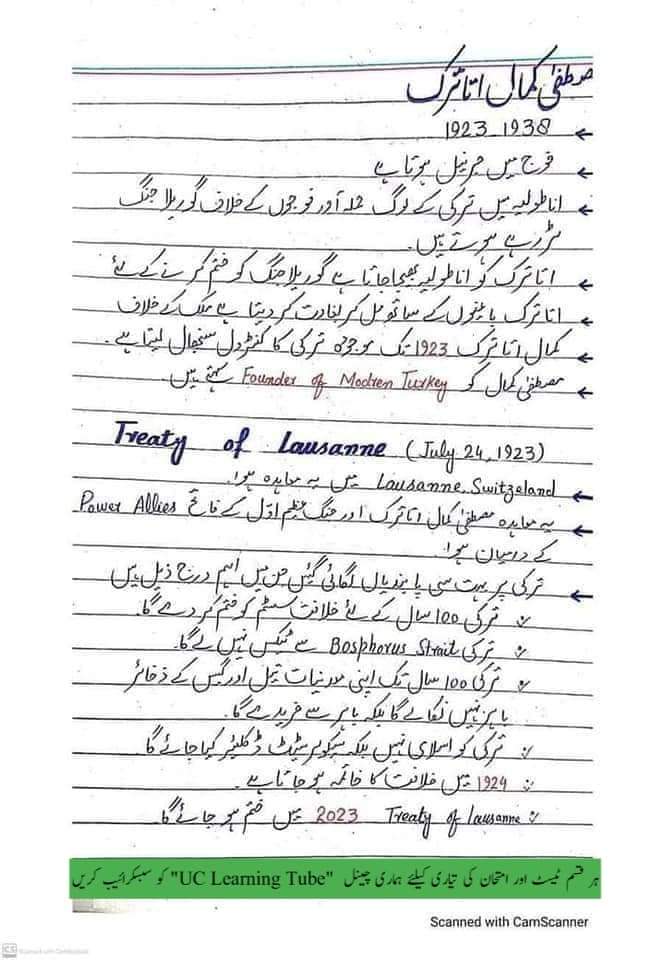 مصطفیٰ کمال اتاترک
1923_1938
فوج میں جرنیل ہوتا ہے
اناطولیہ میں ترکی کے لوگ حملہ آور فوجوں کے خلاف گوریلا جنگ
لڑ رہے ہوتے ہیں۔
اتاترک کو اناطولیہ بھیجا جاتا ہے گوریلا جنگ کو ختم کرنے کے لئے
اتاترک باغیوں کے ساتھ مل کر بغاوت کر دیتا ہے ملک کے خلاف
کمال اتاترک 1923 تک موجودہ ترکی کا کنٹرول سنبھال لیتا ہے۔
مصطفیٰ کمال کو Founder of Modren Turkey کہتے ہیں۔
Treaty of Lausanne (July 24, 1923)
Lausanne, Switzeland میں یہ معاہدہ ہوا۔
یہ معاہدہ مصطفیٰ کمال اتاترک اور جنگ عظیم اوّل کے فاتح Power Allies
کے درمیان ہوا۔
ترکی پر بہت سی پابندیاں لگائی گئیں جن میں اہم درج ذیل ہیں
ترکی 100 سال کے لئے خلافت سسٹم کو ختم کر دے گا۔
ترکی Bosphorus Strait سے ٹیکس نہیں لے گا۔
ترکی 100 سال تک اپنی معدنیات تیل اور گیس کے ذخائر
باہر نہیں نکالے گا بلکہ باہر سے خریدے گا۔
ترکی کو اسلامی نہیں بلکہ سیکولر سٹیٹ ڈکلیئر کیا جائے گا
1924 میں خلافت کا خاتمہ ہو جاتا ہے۔
Treaty of Lausanne 2023 میں ختم ہو جائے گا۔
ہر قسم ٹیسٹ اور امتحان کی تیاری کیلئے ہماری چینل "UC Learning Tube" کو سبسکرائیب کریں
Scanned with CamScanner
CS Scanned with CamScanner